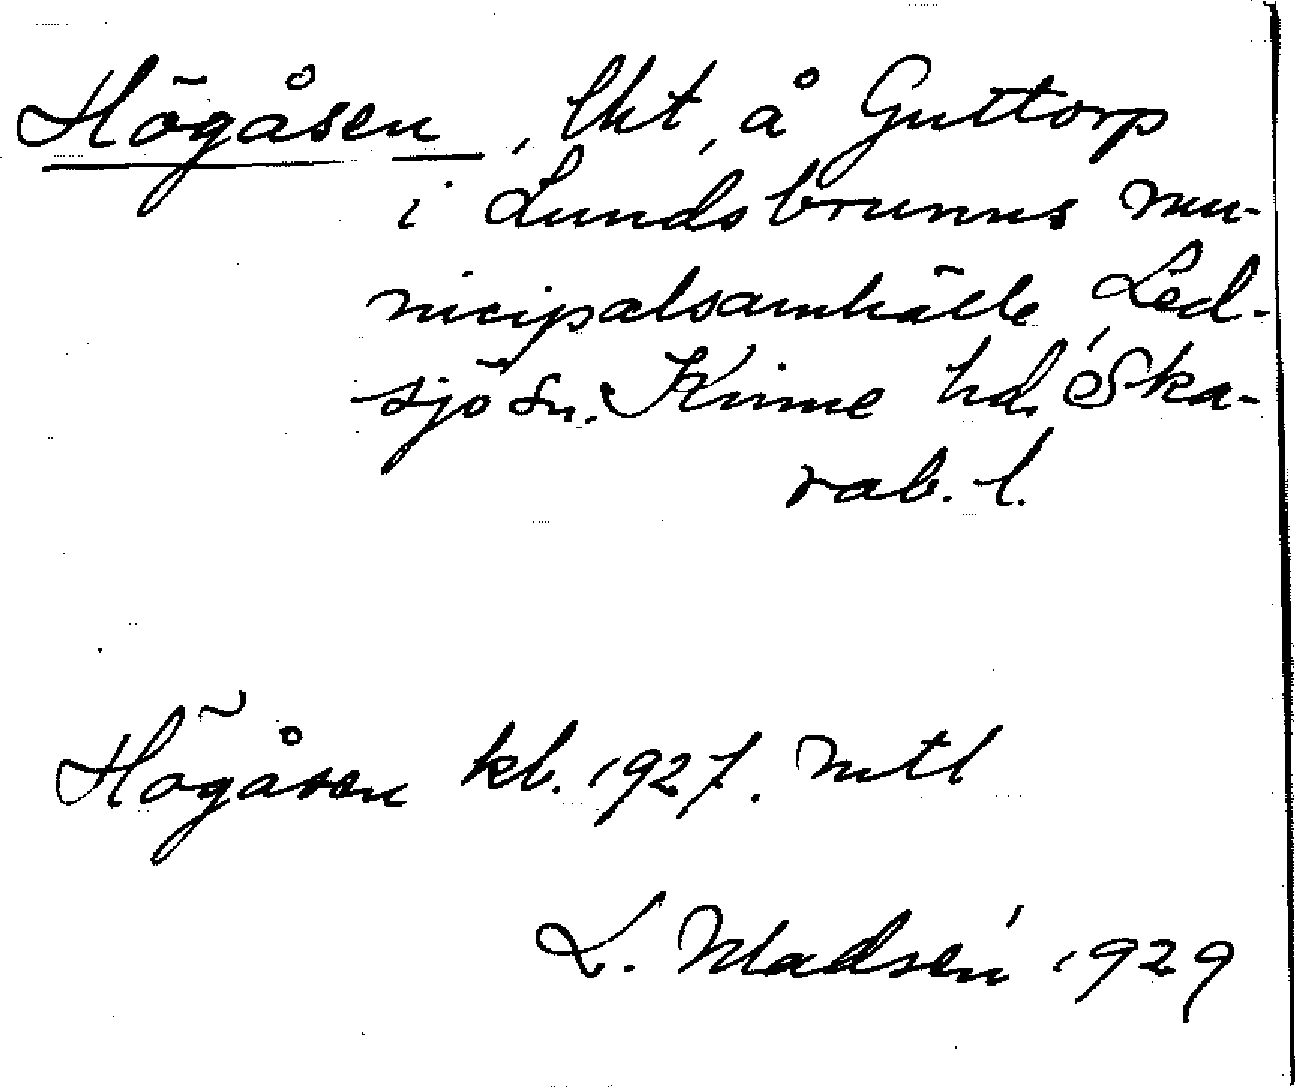 Högåsen, lht, å Guttorp
i Lundsbrunns mu-
nicipalsamhälle, Led-
sjö sn. Kinne hd, Ska-
rab. l.
Högåsen kb. 1927. mtl
L. Madsén 1929